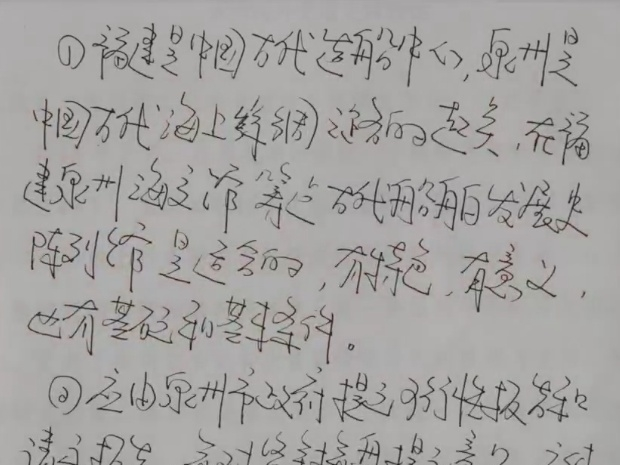 ①福建是中国古代造船中心,泉州是
中国古代海上丝绸之路的起点,在福
建泉州海交馆筹建古代船舶发展史
陈列馆是适合的,有特色,有意义,
也有基础和基本条件。
②应由泉州市政府提出可行性报告和